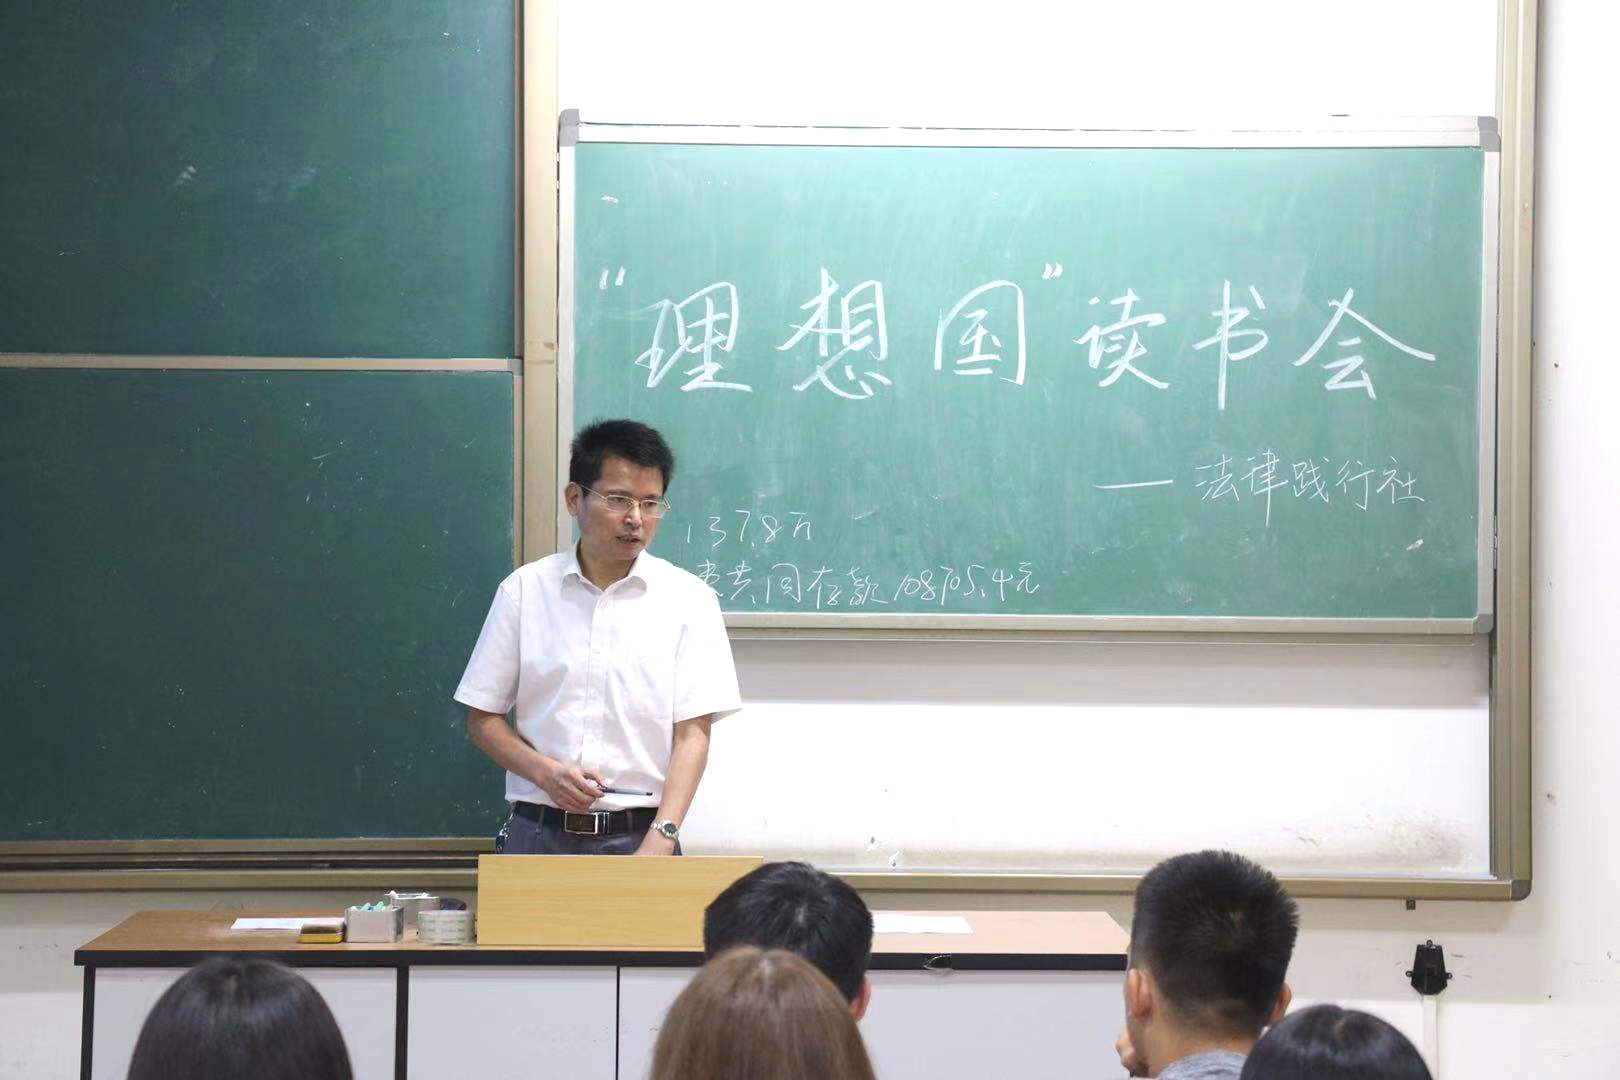 “理想国”读书会
——法律践行社
137.8万
共同存款108705.4元